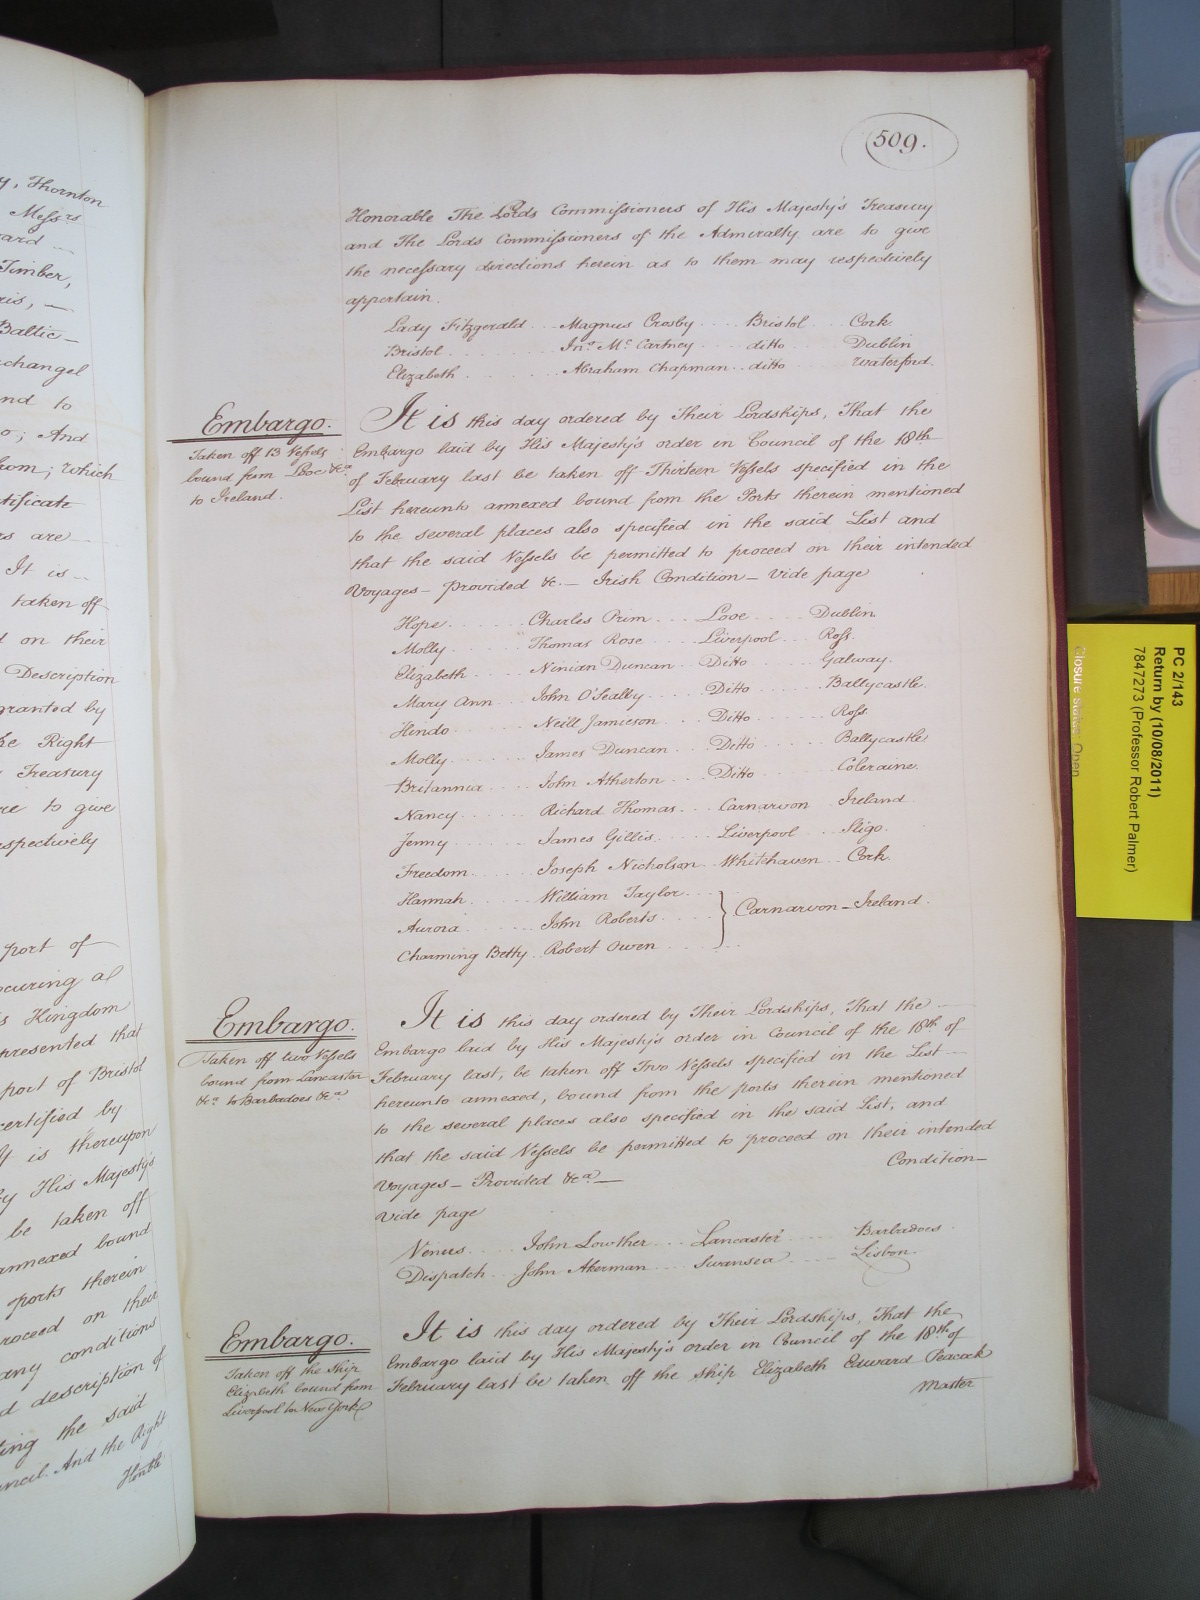 509.
Honorable The Lords Commissioners of His Majesty's Treasury
and The Lords Commissioners of the Admiralty are to give
the necessary directions herein as to them may respectively
appertain.
Lady Fitzgerald Magnus Crosby Bristol Cork
Bristol Jno. Mc. Cartney ditto Dublin
Elizabeth Abraham Chapman ditto Waterford.
Embargo.
Taken off 13 Vessels
bound from Looe &ca
to Ireland.
It is this day ordered by Their Lordships, That the
Embargo laid by His Majesty's order in Council of the 18th
of February last be taken off Thirteen Vessels specified in the
List hereunto annexed bound from the Ports therein mentioned
to the several places also specified in the said List and
that the said Vessels be permitted to proceed on their intended
Voyages - Provided &c. - Irish Condition - Vide page
Hope Charles Prim Looe Dublin
Molly Thomas Rose Liverpool Ross.
Elizabeth Ninian Duncan Ditto Galway.
Mary Ann John O'Sealby Ditto Ballycastle.
Hindo Neill Jamieson Ditto Ross.
Molly James Duncan Ditto Ballycastle
Britannia John Atherton Ditto Coleraine.
Nancy Richard Thomas Carnarvon Ireland.
Jenny James Gillis Liverpool Sligo.
Freedom Joseph Nicholson Whitehaven Cork.
Hannah William Taylor
Aurora John Roberts Carnarvon - Ireland.
Charming Betty Robert Owen
Embargo.
Taken off two Vessels
bound from Lancaster
&ca to Barbadoes &ca
It is this day ordered by Their Lordships, That the
Embargo laid by His Majesty's order in Council of the 18th of
February last, be taken off Two Vessels specified in the List
hereunto annexed, bound from the ports therein mentioned
to the several places also specified in the said List, and
that the said Vessels be permitted to proceed on their intended
Voyages - Provided &ca - Condition -
Vide page
Venus John Lowther Lancaster Barbadoes
Dispatch John Akerman Swansea Lisbon.
Embargo.
Taken off the Ship
Elizabeth bound from
Liverpool to New York
It is this day ordered by Their Lordships, That the
Embargo laid by His Majesty's order in Council of the 18th of
February last be taken off the ship Elizabeth Edward Peacock
Master
y, Thornton
Messrs
ard
Timber,
ris, -
Baltic -
changel
nd to
o; And
hom; which
tificate
rs are
It is
taken off
d on their
Description
granted by
he Right
Treasury
re to give
espectively
port of
ocuring a
s Kingdom
presented that
port of Bristol
certified by
It is thereupon
by His Majesty's
be taken off
annexed bound
ports therein
roceed on their
any conditions
d description of
ting the said
uncil. And the Right
Honble
PC 2/143
Return by (10/08/2011)
7847273 (Professor Robert Palmer)
Closure status: Open